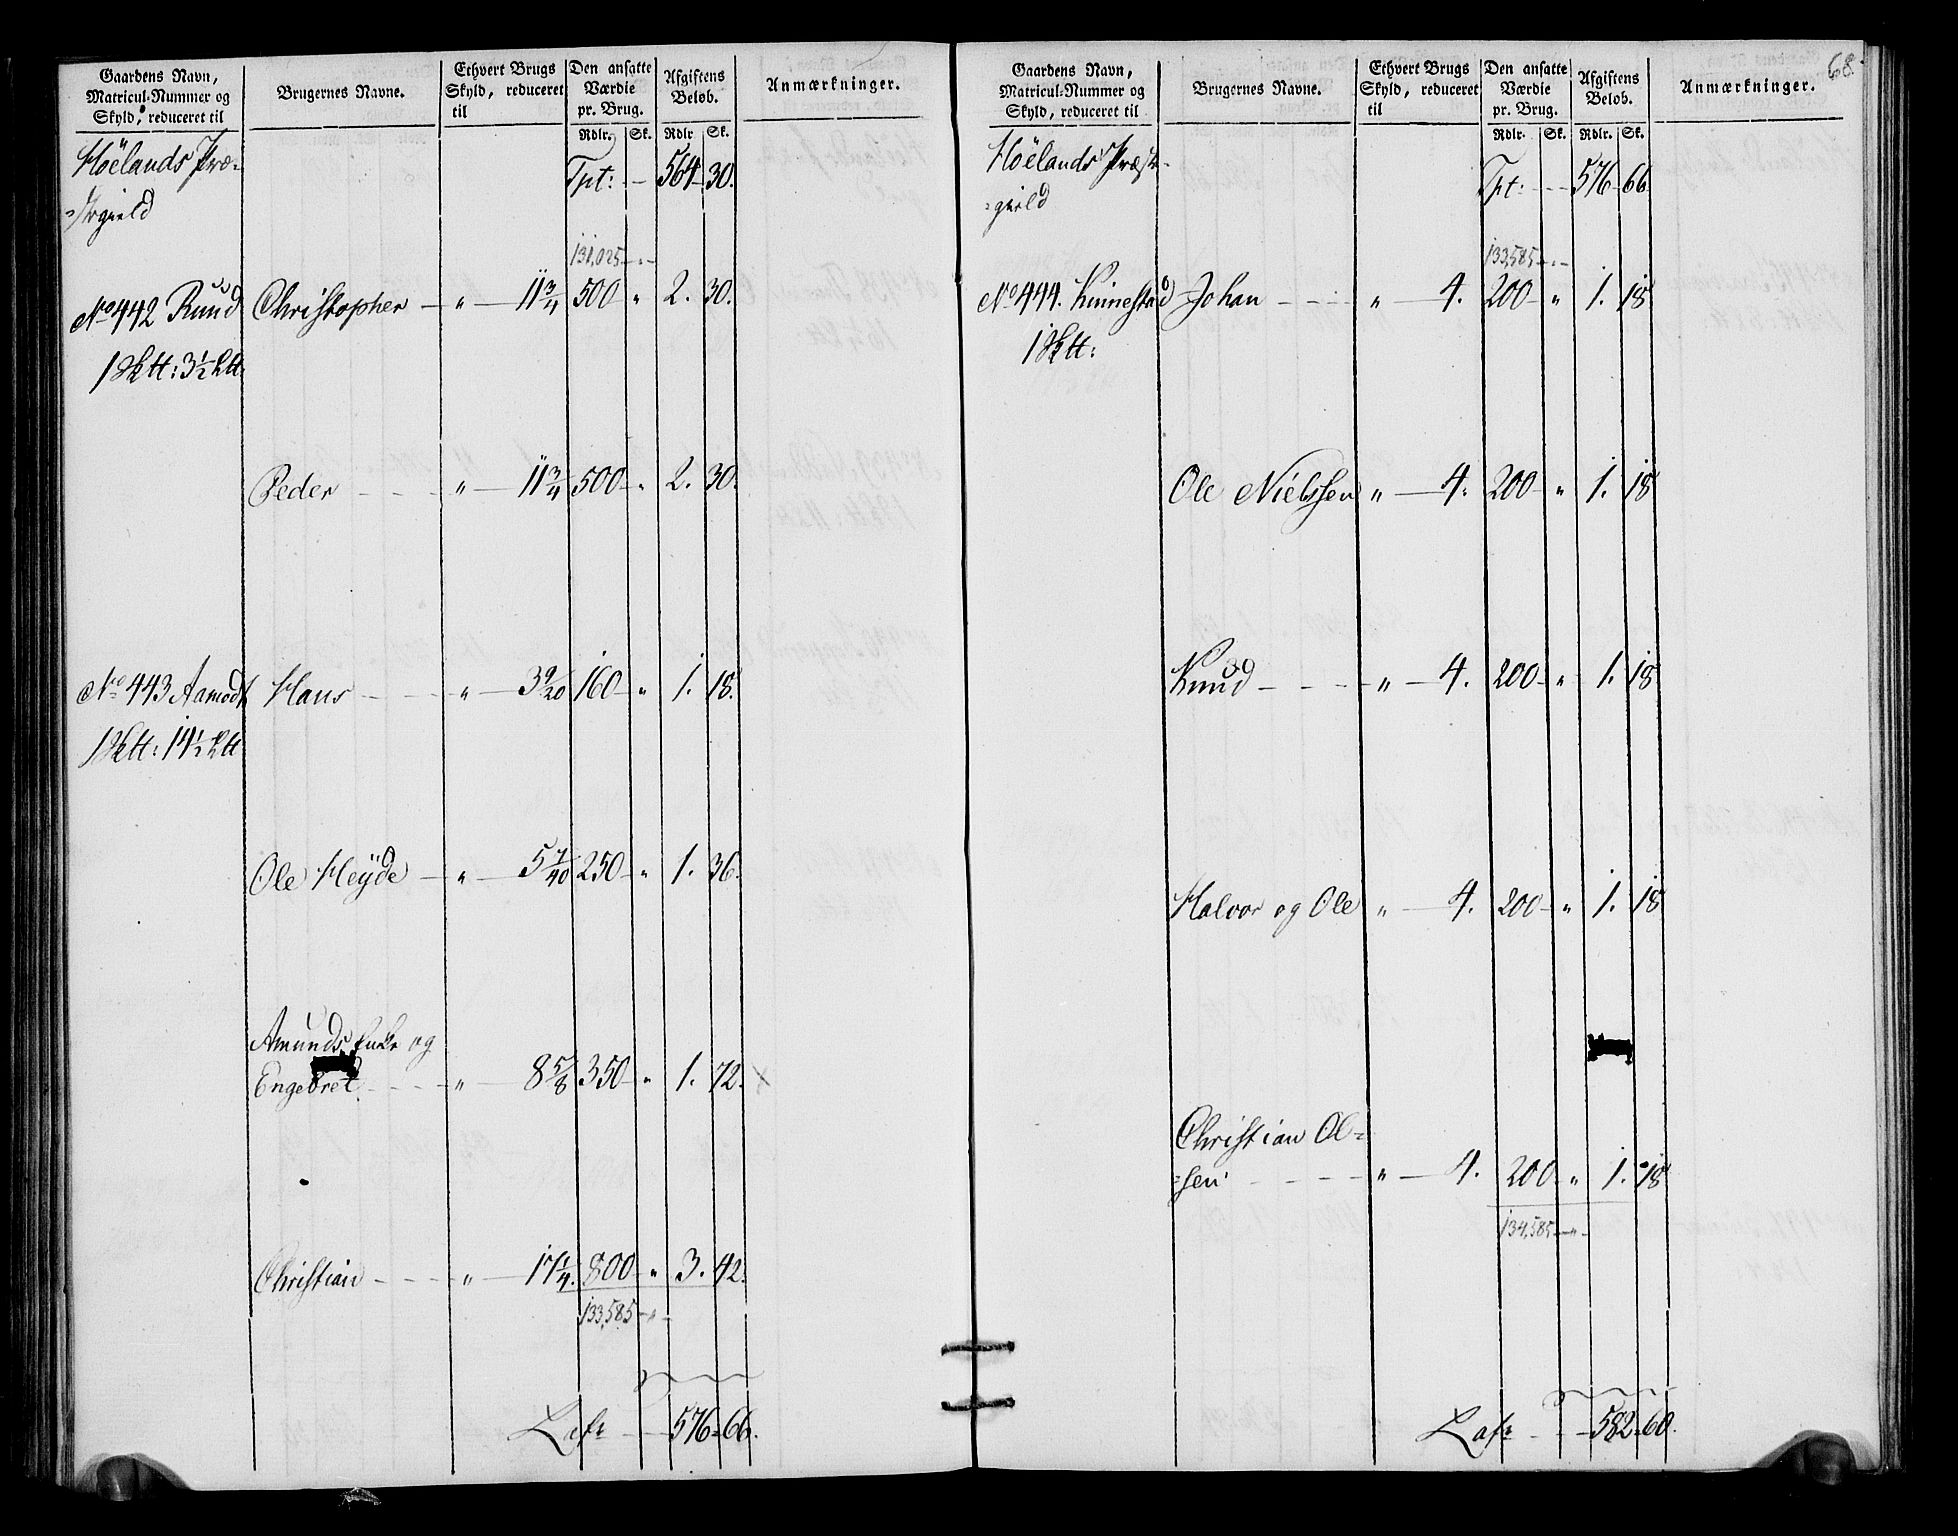 Gaardens Navn, Matricul-Nummer og Skyld, reduceret til | Brugernes Navne. | Ethvert Brugs Skyld, reduceret til | Den ansatte Værdie pr. Brug. Rdlr. Sk. | Afgiftens Beløb. Rdlr Sk. | Anmærkninger.
Höelands Præ= Tpt: 564 30.
=stegield
131,025
No 442 Ruud Christopher " 11 3/4 500 " 2. 30.
1 Sktt: 3 1/2 Ltt:
Peder " 11 3/4 500 " 2. 30.
No 443 Aamodt Hans " 3 9/20 160 " 1. 18.
1 Sktt: 14 1/2 Ltt
Ole Heyde " 5 7/40 250 " 1. 36.
Amunds Enke og
Engebret " 8 5/8 350 " 1. 72. x
Christian " 17 1/4. 800 " 3. 42.
133,585
Lats 576 66.
68
Gaardens Navn, Matricul-Nummer og Skyld, reduceret til | Brugernes Navne. | Ethvert Brugs Skyld, reduceret til | Den ansatte Værdie pr. Brug. Rdlr. Sk. | Afgiftens Beløb. Rdlr. Sk. | Anmærkninger.
Höelands Præste= Tpt: 576 66
=gield
133,585
No 444. Kinnestad Johan " 4. 200 " 1. 18
1 Sktt:
Ole Nielssen " 4. 200 " 1. 18
Knud " 4. 200 " 1. 18
Halvor og Ole " 4. 200 " 1. 18
Christian Ol=
=sen " 4. 200 " 1. 18
134,585
Lats 582 60.